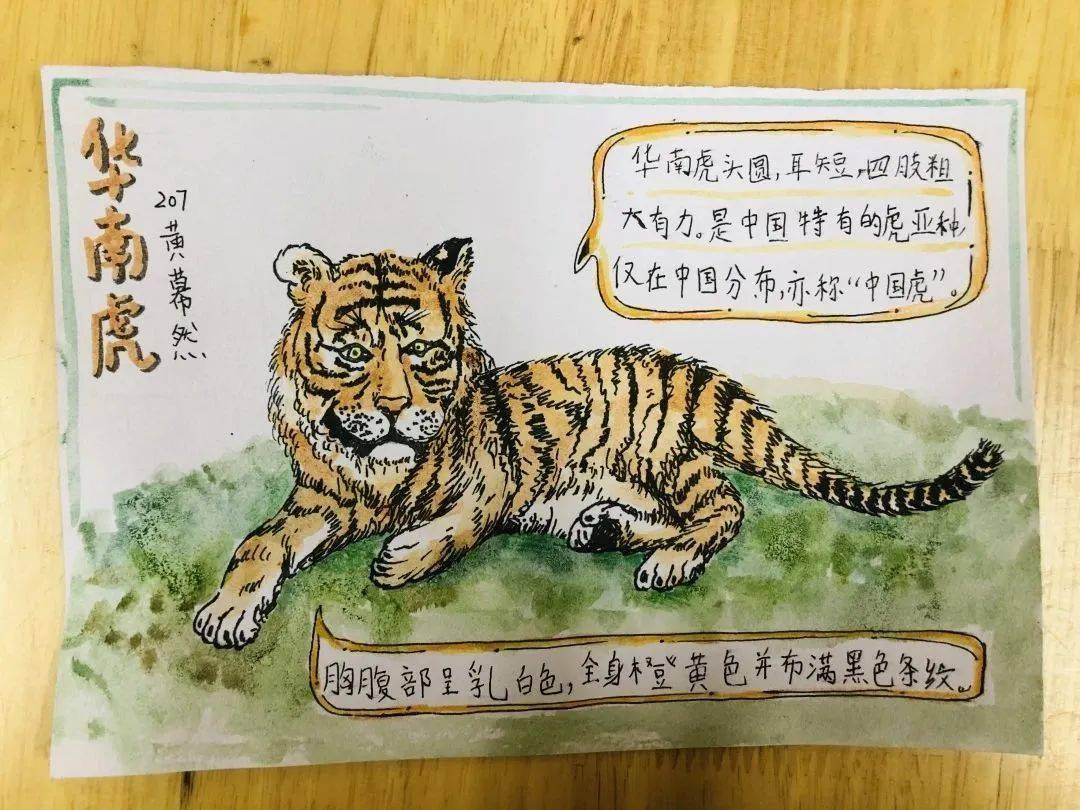 华南虎
207 黄幕然
华南虎头圆,耳短,四肢粗
大有力。是中国特有的虎亚种,
仅在中国分布,亦称“中国虎”。
胸腹部呈乳白色,全身橙黄色并布满黑色条纹。